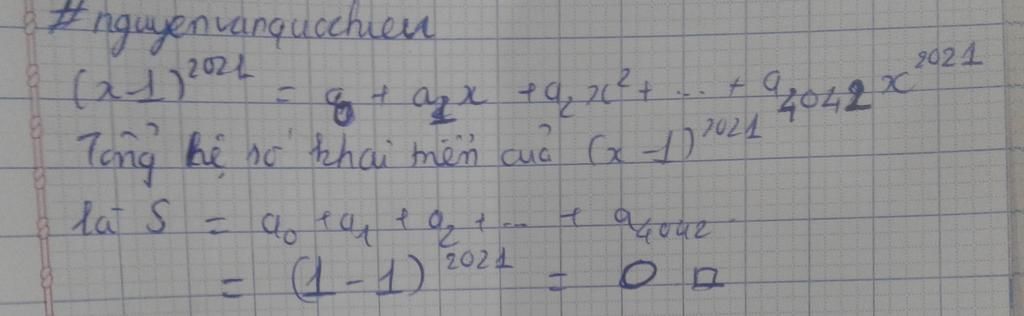 #nguyenvanquocchieu
(x-1)^2021 = a_0 + a_1x + a_2x^2 + ... + a_4042 x^2021
Tổng hệ số khai triển của (x-1)^2021
là S = a_0 + a_1 + a_2 + ... + a_4042
= (1-1)^2021 = 0 □